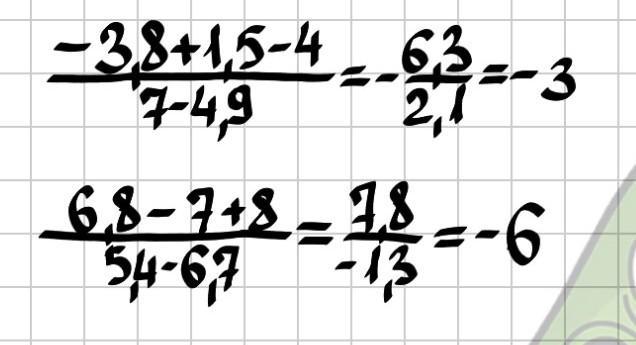 (-3,8+1,5-4)/(7-4,9) = -6,3/2,1 = -3
(6,8-7+8)/(5,4-6,7) = 7,8/-1,3 = -6